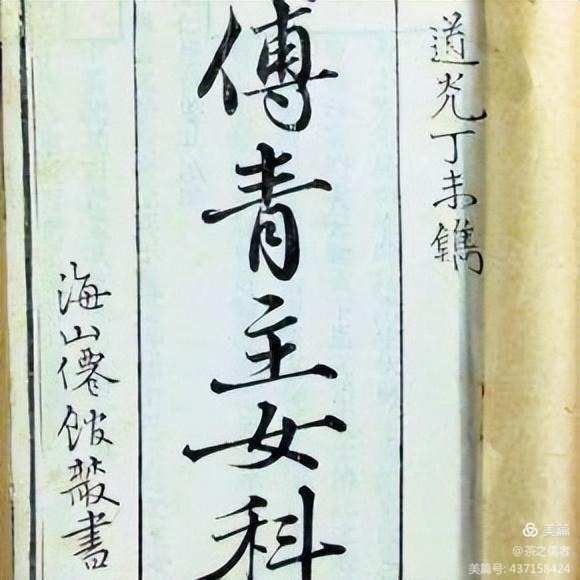 道光丁未鐫
傅青主女科
海山僊館叢書
美篇
@茶之儒者
美篇号: 437158424